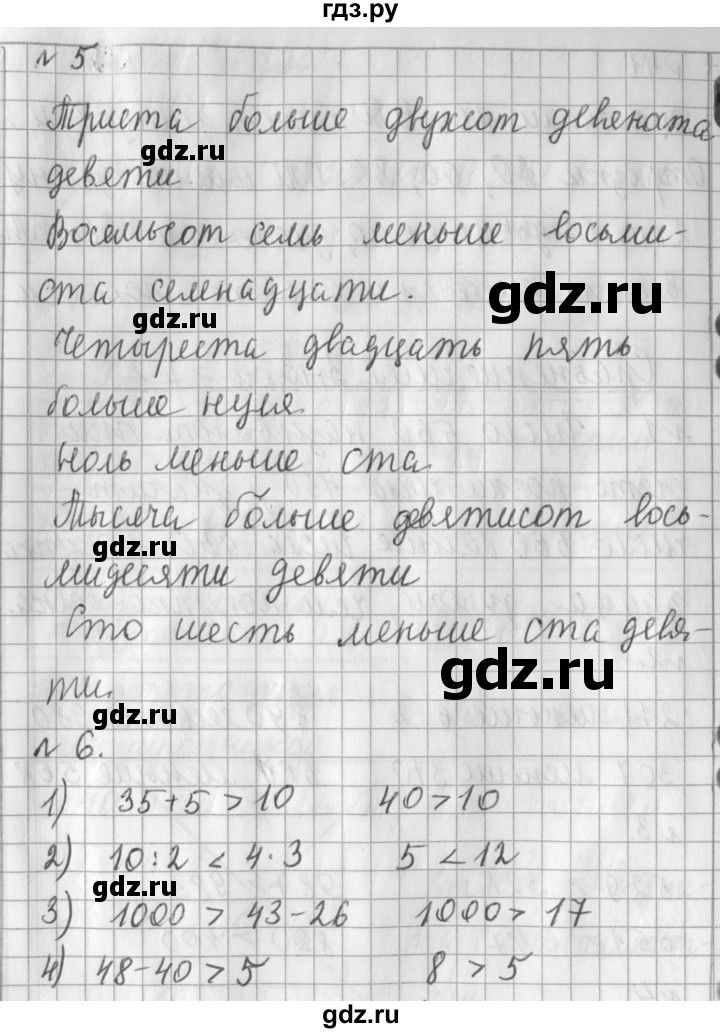 гдз.ру
№ 5.
Триста больше двухсот девяноста
gdz.ru
девяти.
Восемьсот семь меньше восьми-
ста семнадцати.
gdz.ru
gdz.ru
Четыреста двадцать пять
больше нуля.
Ноль меньше ста.
Тысяча больше девятисот вось-
gdz.ru
мидесяти девяти
Сто шесть меньше ста девя-
gdz.ru
ти.
gdz.ru
№ 6.
1) 35+5 > 10 40 > 10
2) 10:2 < 4·3 5 < 12
gdz.ru
3) 1000 > 43-26 1000 > 17
4) 48-40 > 5 8 > 5